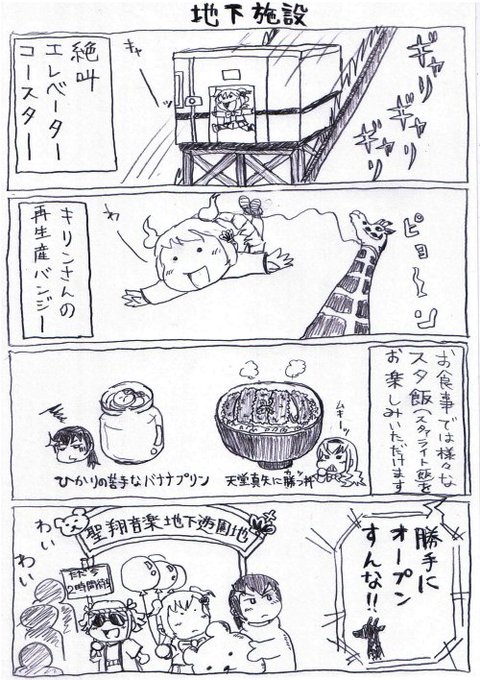 地下施設
絶叫
エレベーター
コースター
キャーッ
ギャリ
ギャリ
ギャリ
キリンさんの
再生産バンジー
わー
ピョ〜〜ン
お食事では様々な
スタ飯(スタァライト飯)を
お楽しみいただけます
ひかりの苦手なバナナプリン
天堂真矢に勝つ丼
ムキーッ
勝手に
オープン
すんな!!
聖翔音楽地下遊園地
2時間待ち
わい
わい